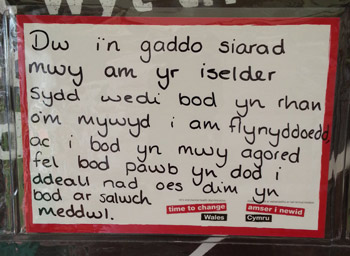 Dw i'n gaddo siarad
mwy am yr iselder
sydd wedi bod yn rhan
o'm mywyd i am flynyddoedd,
ac i bod yn mwy agored
fel bod pawb yn dod i
ddeall nad oes dim yn
bod ar salwch
meddwl.
time to change
Wales
amser i newid
Cymru